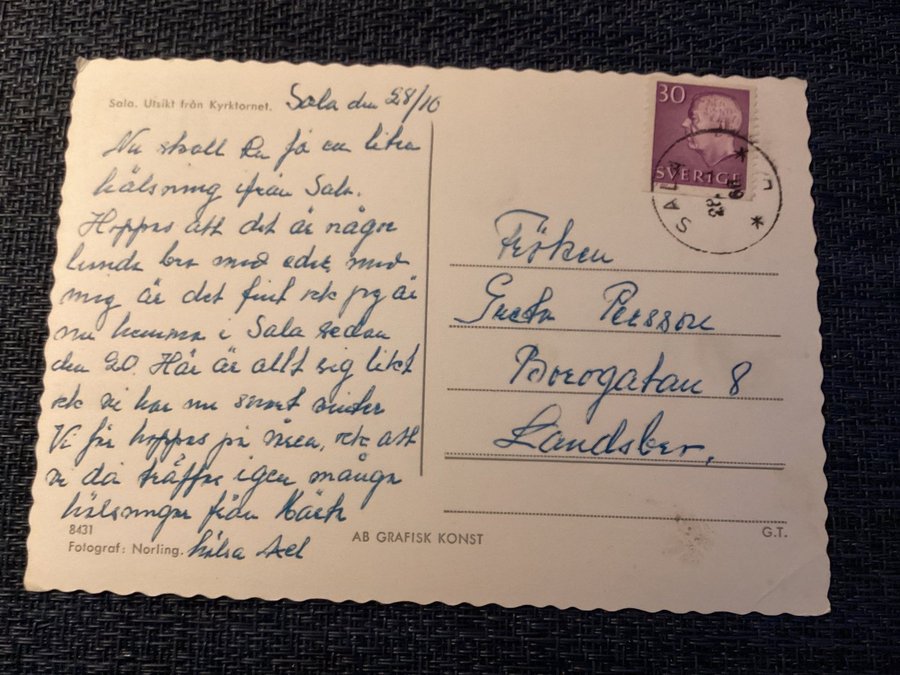 Sala. Utsikt från Kyrktornet.
Sala den 28/10
Nu skall Du få en liten
hälsning ifrån Sala.
Hoppas att det är någor
lunda bra med eder, med
mig är det fint ock jag är
nu hemma i Sala sedan
den 20. Här är allt sig likt
ock vi har nu snart vinter
Vi får hoppas på våren, ock att
vi då träffas igen många
hälsningar från
hälsa Axel
8431
Fotograf: Norling.
AB GRAFISK KONST
G.T.
30
SVERIGE
SALA
Fröken
Greta Persson
Borogatan 8
Landsbro.